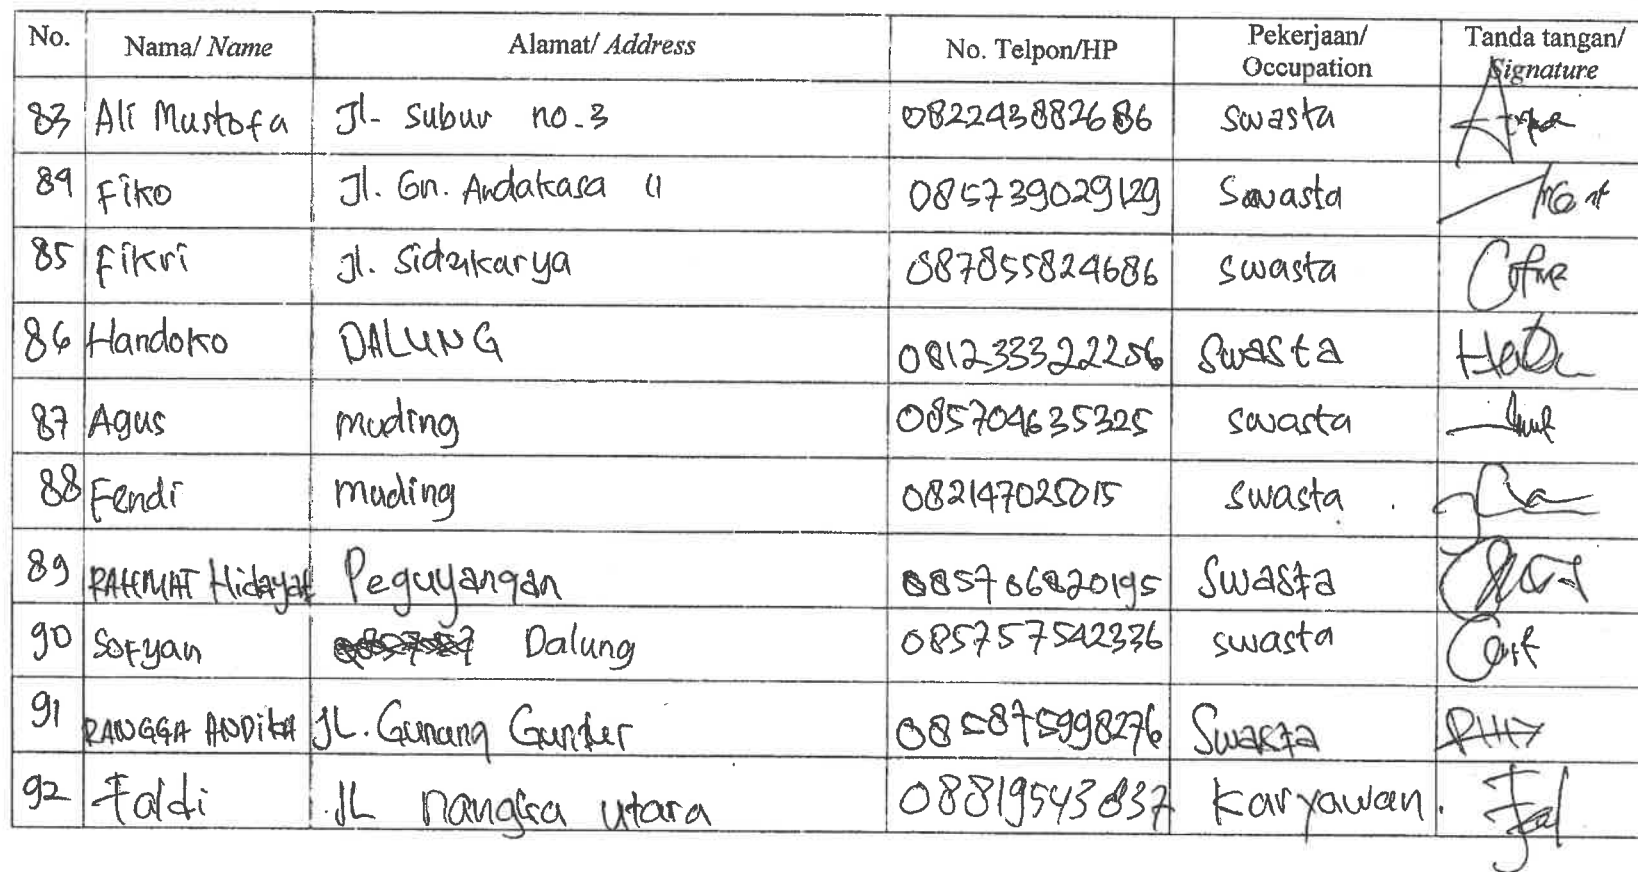 No. Nama/ Name Alamat/ Address No. Telpon/HP Pekerjaan/ Occupation Tanda tangan/ Signature
83 Ali Mustofa Jl- Subur no.3 082243882686 Swasta
84 Fiko Jl. Gn. Andakasa 085739029129 Swasta
85 Fikri Jl. Sidakarya 087855824686 Swasta
86 Handoko DALUNG 081233322256 Swasta
87 Agus muding 085704635325 swasta
88 Fendi muding 082147025015 swasta
89 RAHMAT Hidayat Peguyangan 085706820195 Swasta
90 Sofyan Dalung 085757542336 swasta
91 RANGGA ANDIKA JL. Gunung Guntur 085875998276 Swasta
92 Faldi JL nangka utara 08819543837 Karyawan.